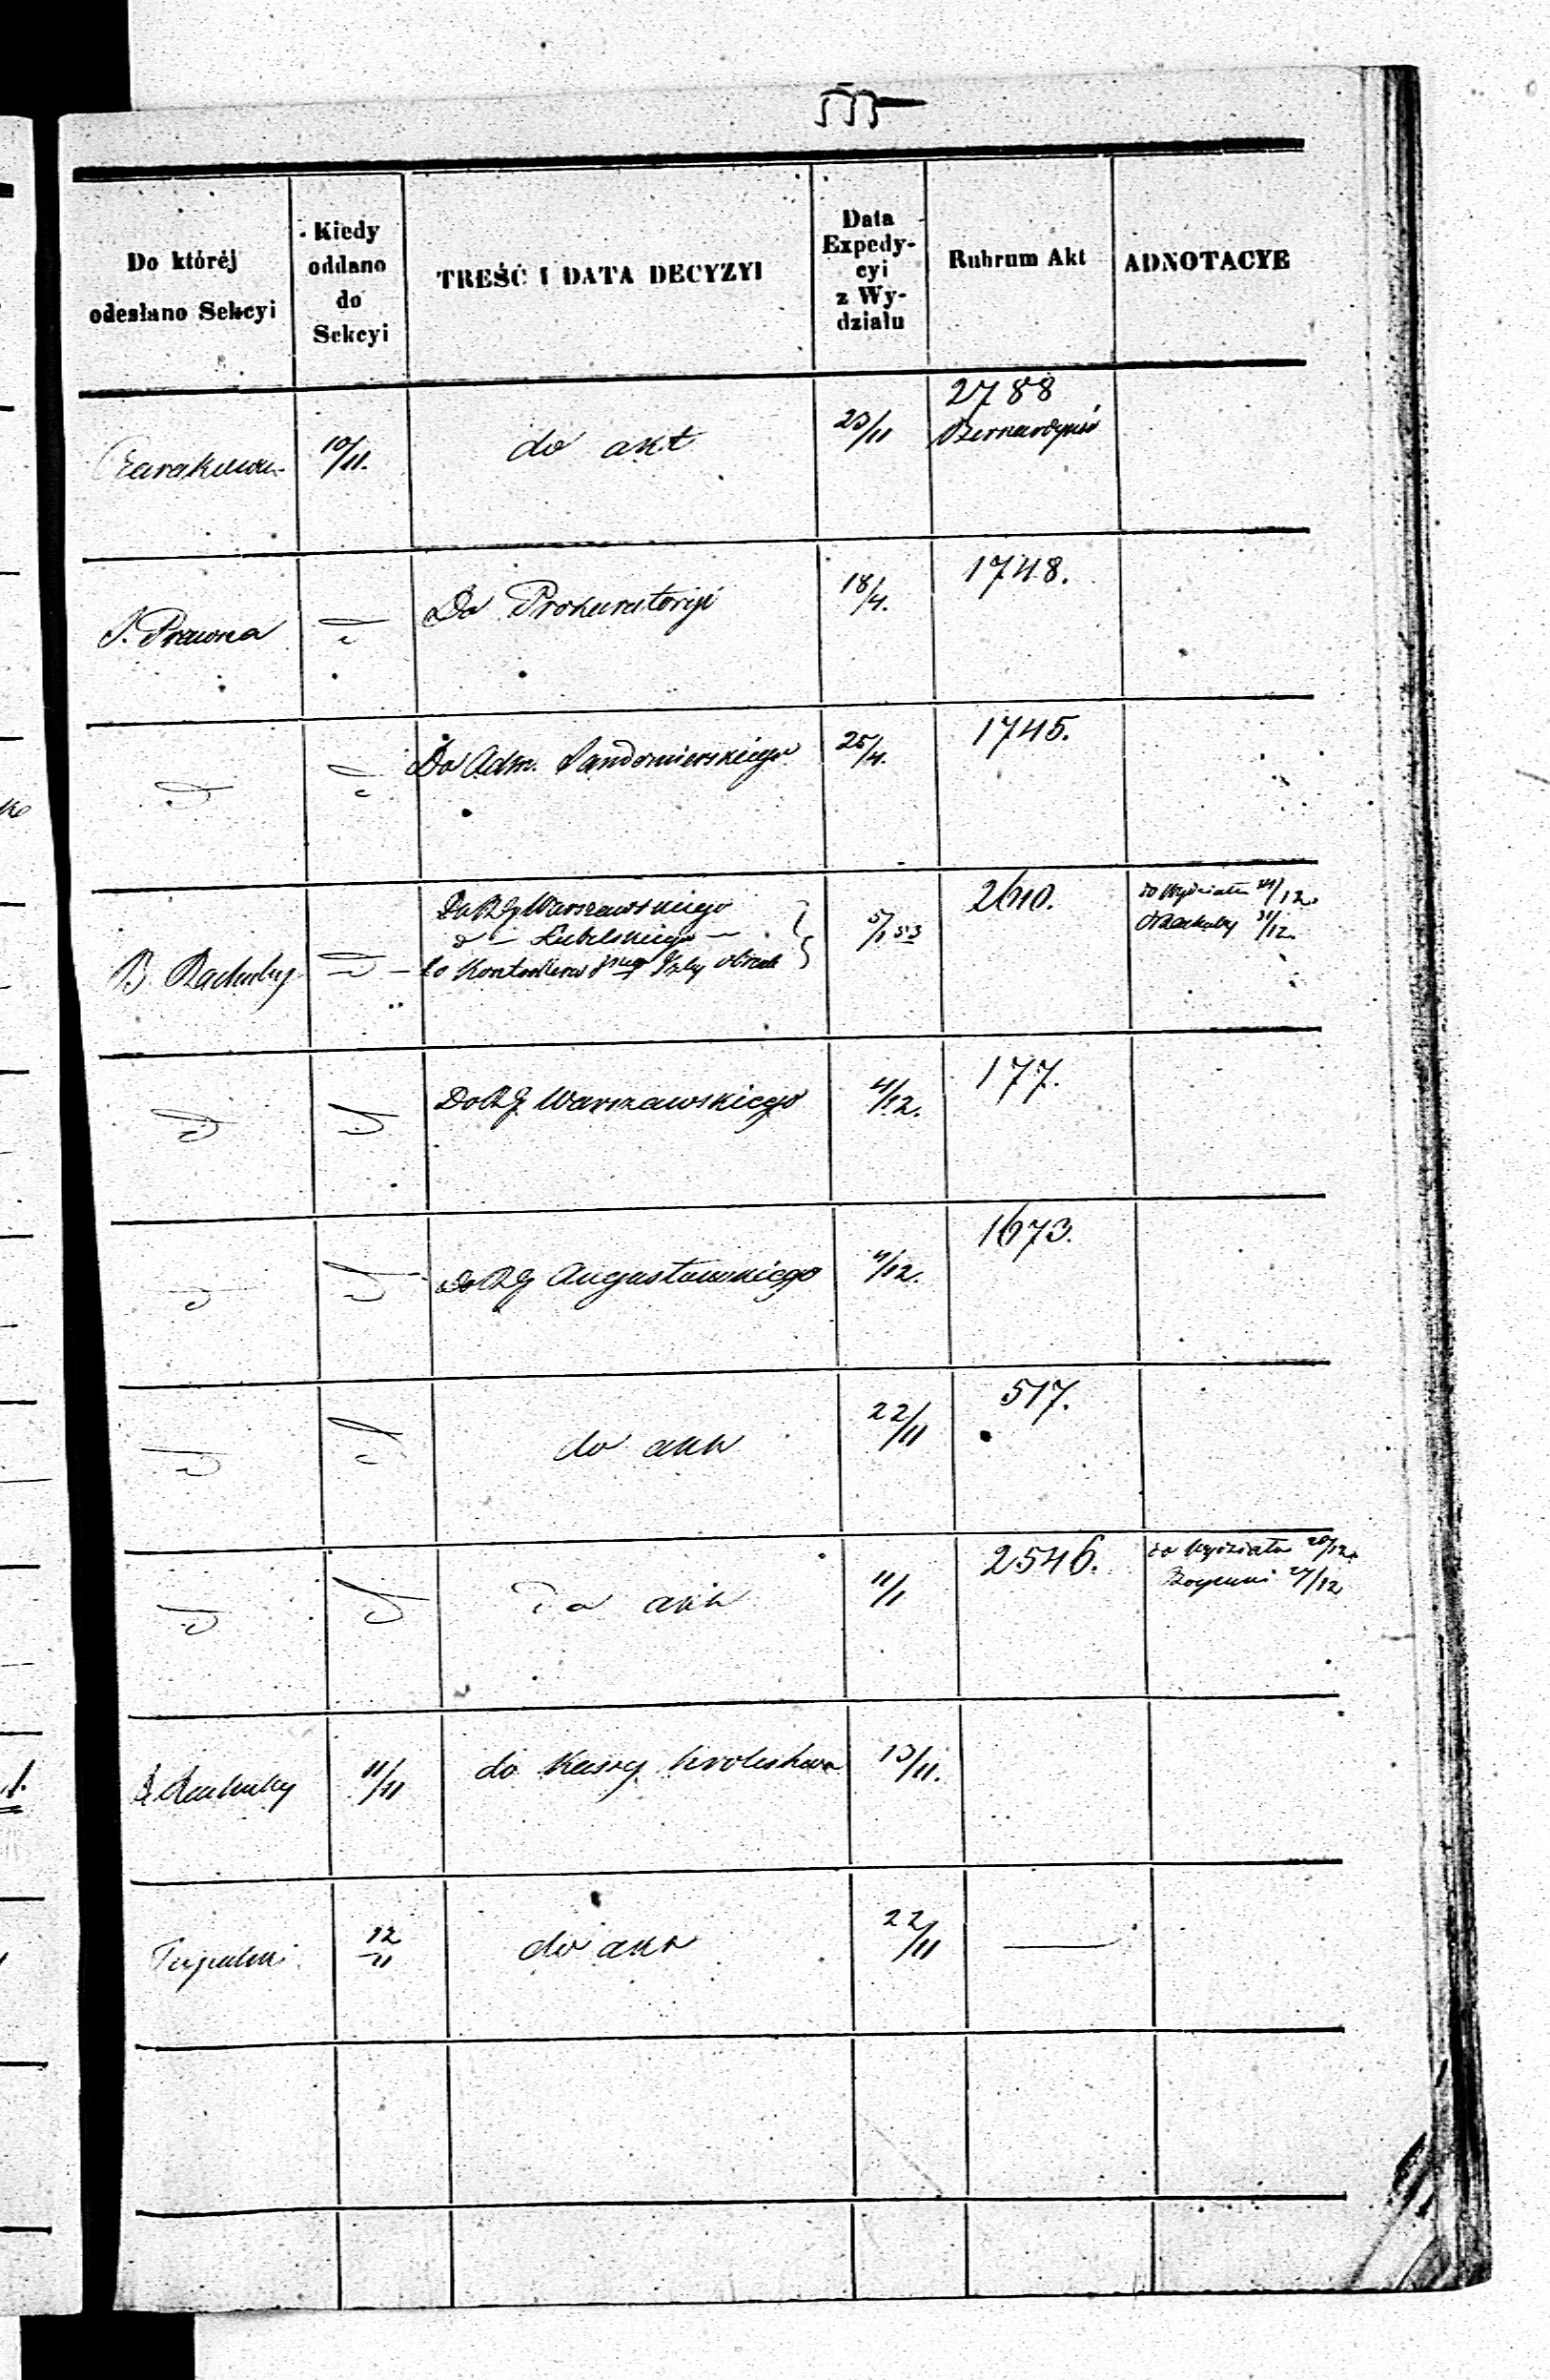 555
Do któréj odesłano Sekcyi
Kiedy oddano do Sekcyi
TREŚĆ I DATA DECYZYI
Data Expedycyi z Wydziału
Rubrum Akt
ADNOTACYE
10/11. do akt 23/11 2788
Bernardynów
S. Prawna Do Prokuratoryi 18/4. 1748.
Do Adm. Sandomierskiego 25/4. 1745.
Do RG Warszawskiego
d – Lubelskiego –
B. Rachuby do Kontrollera 5/1 53 2610. do Wydziału 21/12.
Rachuby 31/12.
Do RG Warszawskiego 4/12. 177.
Do RG Augustowskiego 4/12. 1673.
do akt 22/11 517.
Do akt 11/1 2546. do Wydziału 20/12.
27/12
B. Rachuby 11/11 do Kassy Królestwa 13/11.
12/11 do akt 22/11 —